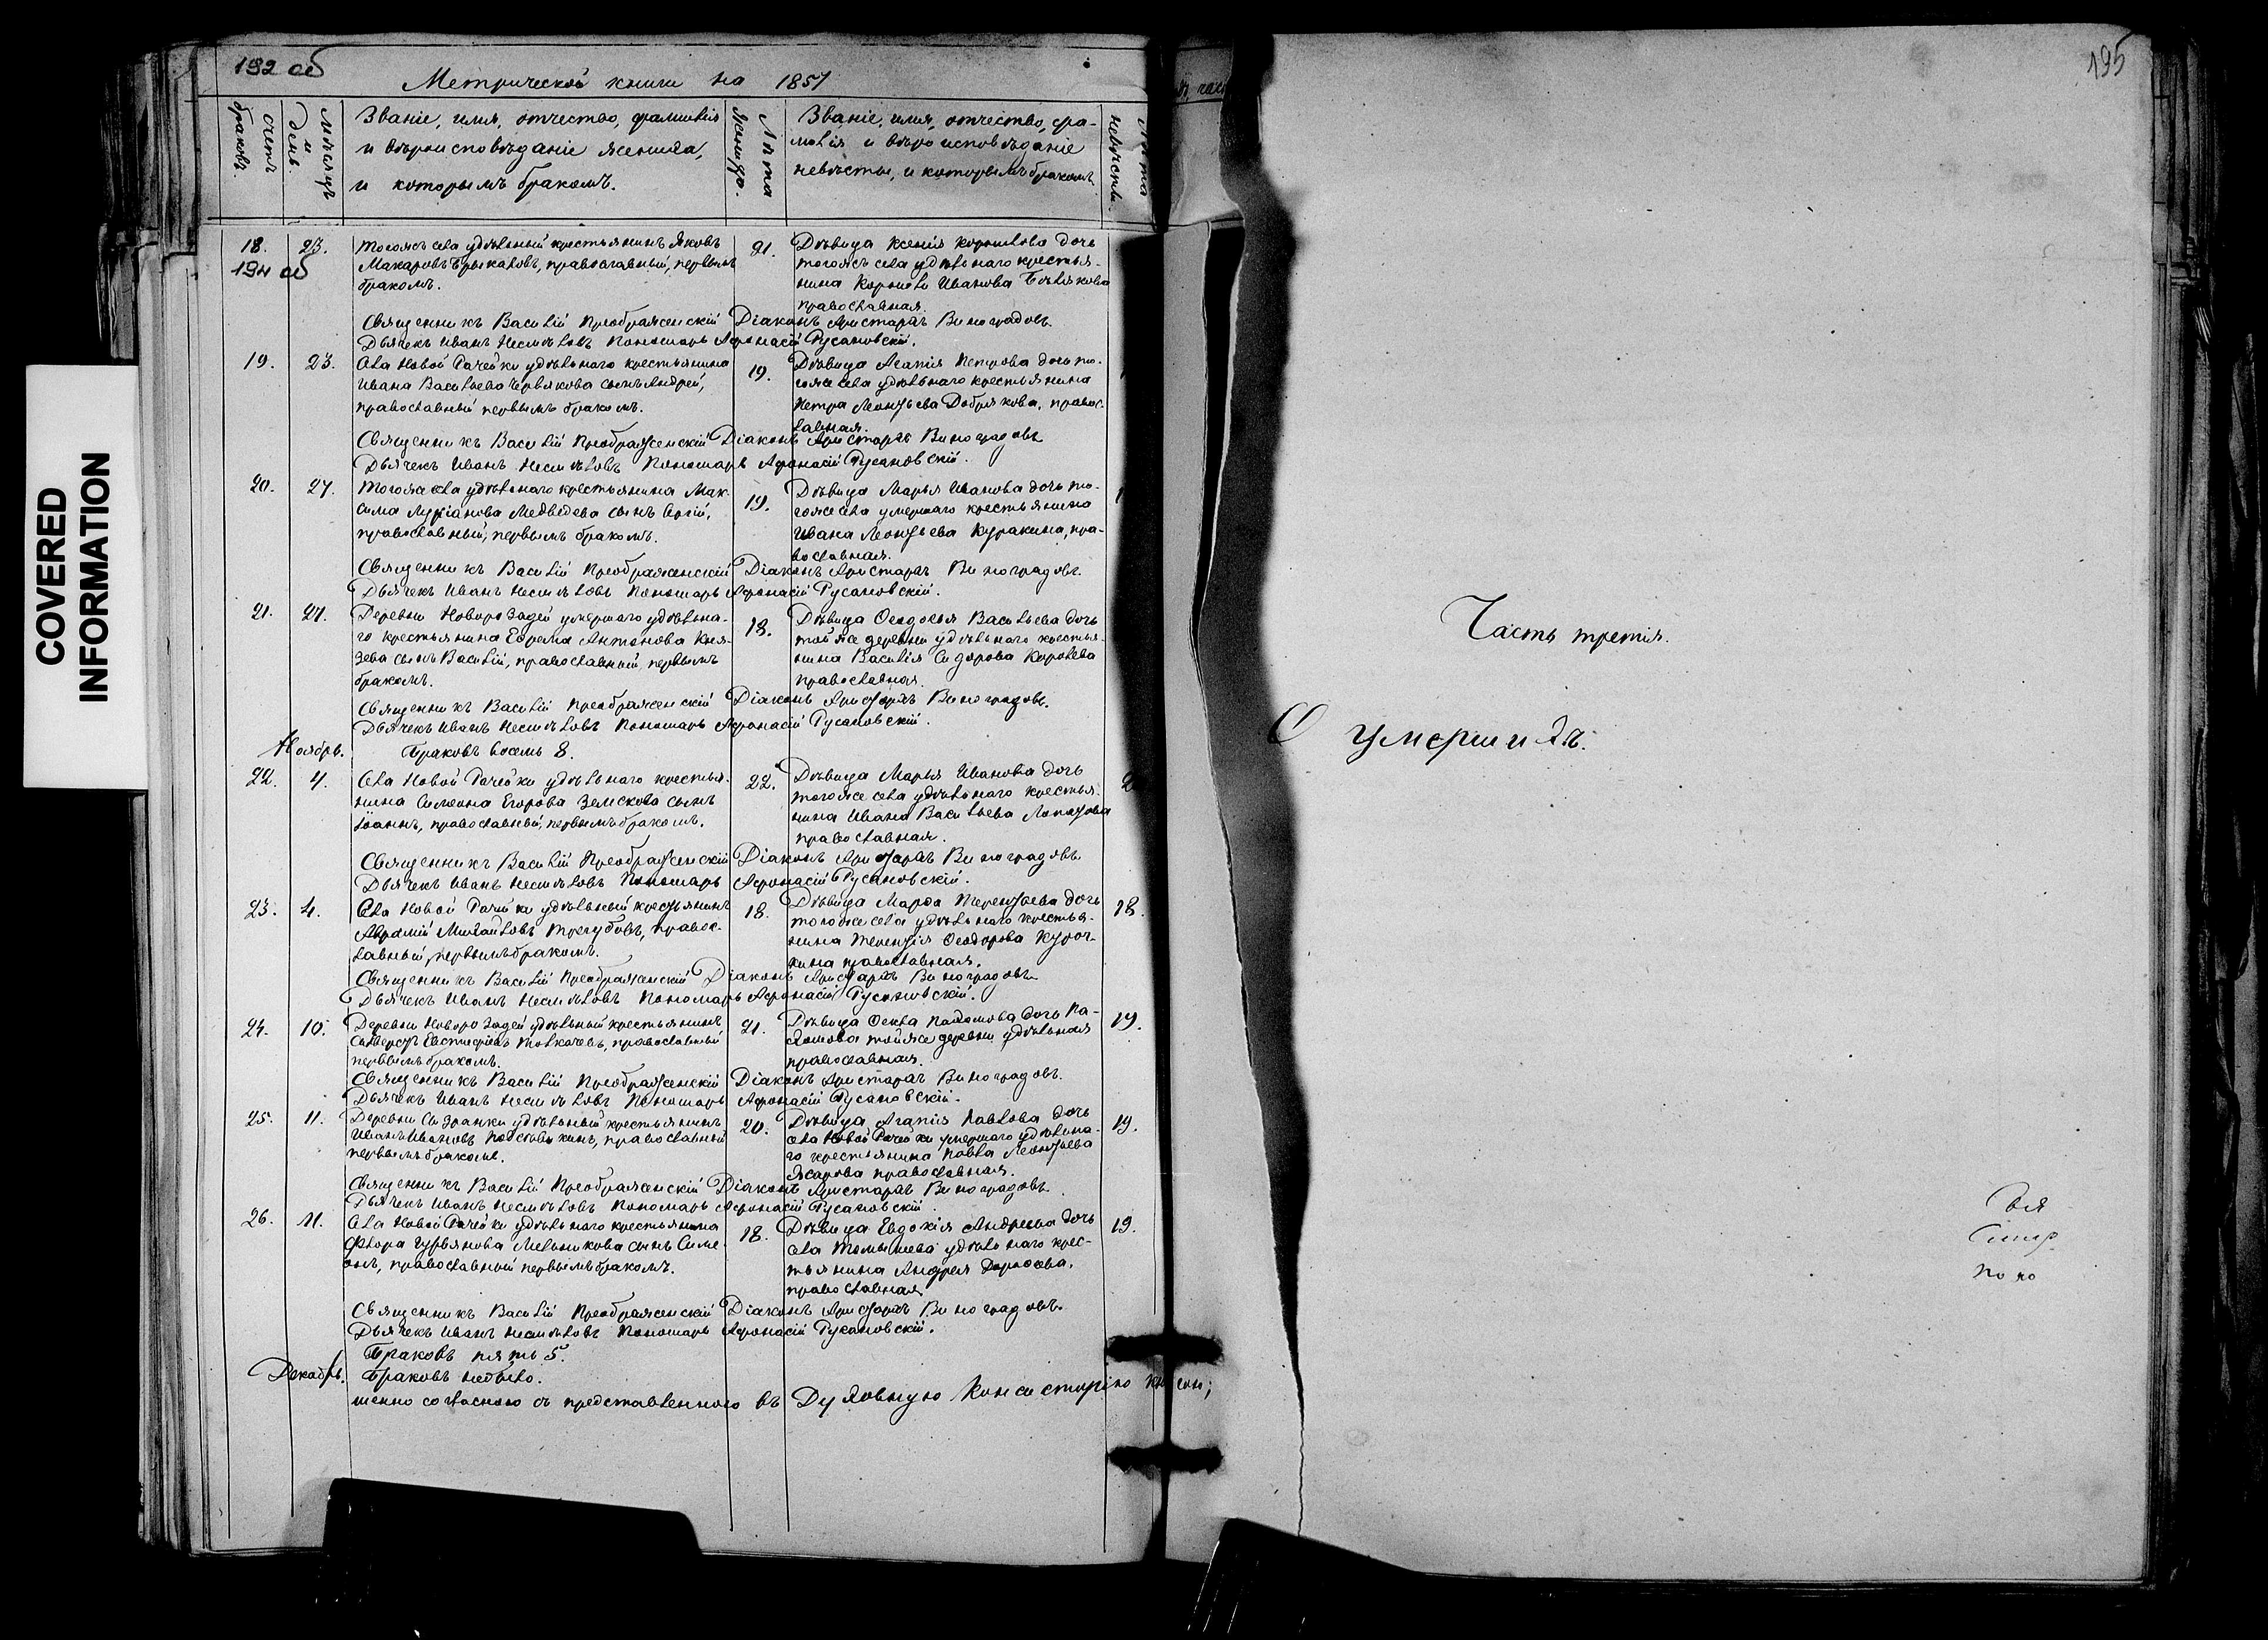 192 об
Метрической книги на 1857
счетъ браковъ.
мѣсяцъ и день.
Званіе, имя, отчество, фамилія
и вѣроисповѣданіе жениха,
и которымъ бракомъ.
Лѣта жениха.
Званіе, имя, отчество, фа-
милія и вѣроисповѣданіе
невѣсты, и которымъ бракомъ
Лѣта невѣсты.
18. 23. тогожъ села удѣльный крестьянинъ Яковъ
194 об
Макаровъ православный, первымъ
бракомъ.
21. Дѣвица Ксенія Корнилова дочь
тогожъ села удѣльнаго крестья-
нина Корнила Иванова Бѣлякова
православная.
Священникъ Василій Преображенскій Діаконъ Аристархъ Виноградовъ
Дьячекъ Иванъ Несмѣловъ Пономарь Афонасій Русановскій.
19. 23. Села Новой Рачейки удѣльнаго крестьянина
Ивана Васильева Червякова сынъ Андрей,
православный первымъ бракомъ.
19. Дѣвица Агапія Петрова дочь то-
гоже села удѣльнаго крестьянина
Петра Леонтьева Добрякова, правос-
лавная.
Священникъ Василій Преображенскій Діаконъ Аристархъ Виноградовъ
Дьячекъ Иванъ Несмѣловъ Пономарь Афонасій Русановскій.
20. 27. тогоже села удѣльнаго крестьянина Мак-
сима Лукіанова Медведева сынъ Сергій,
православный, первымъ бракомъ.
19. Дѣвица Марья Иванова дочь то-
гоже села умершаго крестьянина
Ивана Леонтьева Куракина, пра-
вославная.
Священникъ Василій Преображенскій Діаконъ Аристархъ Виноградовъ.
Дьячекъ Иванъ Несмѣловъ Пономарь Афонасій Русановскій.
21. 27. Деревни умершаго удѣльна-
го крестьянина Ефрема Антонова Кня-
зева сынъ Василій, православный, первымъ
бракомъ.
18. Дѣвица Ѳеодосья Васильева дочь
той же деревни удѣльнаго крестья-
нина Василія Сидорова Королева
православная.
Священникъ Василій Преображенскій Діаконъ Аристархъ Виноградовъ.
Дьячекъ Иванъ Несмѣловъ Пономарь Афонасій Русановскій.
Ноябрь. Браковъ восемь 8.
22. 4. Села Новой Рачейки удѣльнаго крестья-
нина Симеона Егорова Земскова сынъ
Іоаннъ, православный, первымъ бракомъ.
22. Дѣвица Марья Иванова дочь
тогоже села удѣльнаго крестья-
нина Ивана Васильева
православная.
Священникъ Василій Преображенскій Діаконъ Аристархъ Виноградовъ
Дьячекъ Иванъ Несмѣловъ Пономарь Афонасій Русановскій.
23. 4. Села Новой Рачейки удѣльный крестьянинъ
Аврамій Михайловъ Трегубовъ, правос-
лавный, первымъ бракомъ.
18. Дѣвица Марѳа Терентьева дочь
тогоже села удѣльнаго крестья-
нина Терентія Ѳеодорова Куроч-
кина православная.
18.
Священникъ Василій Преображенскій Діаконъ Аристархъ Виноградовъ
Дьячекъ Иванъ Несмѣловъ Пономарь Афонасій Русановскій.
24. 10. Деревни удѣльный крестьянинъ
Толкачевъ, православный
первымъ бракомъ.
21. Дѣвица Ѳекла Пахомова дочь Па-
хомова тойже деревни удѣльная
православная.
19.
Священникъ Василій Преображенскій Діаконъ Аристархъ Виноградовъ.
Дьячекъ Иванъ Несмѣловъ Пономарь Афонасій Русановскій.
25. 11. Деревни Сызранки удѣльный крестьянинъ
Иванъ Ивановъ православный
первымъ бракомъ.
20. Дѣвица Агапія Павлова дочь
села Новой Рачейки умершаго удѣльна-
го крестьянина Павла Леонтьева
православная.
19.
Священникъ Василій Преображенскій Діаконъ Аристархъ Виноградовъ
Дьячекъ Иванъ Несмѣловъ Пономарь Афонасій Русановскій.
26. 11. Села Новой Рачейки удѣльнаго крестьянина
Флора Гурьянова Мельникова сынъ Симе-
онъ, православный первымъ бракомъ.
18. Дѣвица Евдокія Андреева дочь
села Томышева удѣльнаго крес-
тьянина Андрея
православная
19.
Священникъ Василій Преображенскій Діаконъ Аристархъ Виноградовъ.
Дьячекъ Иванъ Несмѣловъ Пономарь Афонасій Русановскій.
Браковъ пять 5.
Декабрь. Браковъ небыло.
согласною съ представленною въ Духовную Консисторію
195
Часть третія.
О умершихъ.
COVERED
INFORMATION